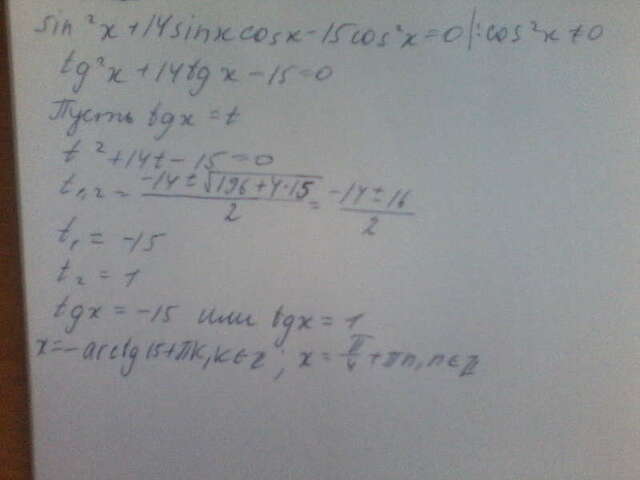 sin²x+14sinxcosx-15cos²x=0 |:cos²x≠0
tg²x+14tgx-15=0
Пусть tgx=t
t²+14t-15=0
t₁,₂ = (-14±√(196+4·15))/2 = (-14±16)/2
t₁ = -15
t₂ = 1
tgx=-15 или tgx=1
x=-arctg15+πk, k∈z; x=π/4+πn, n∈z